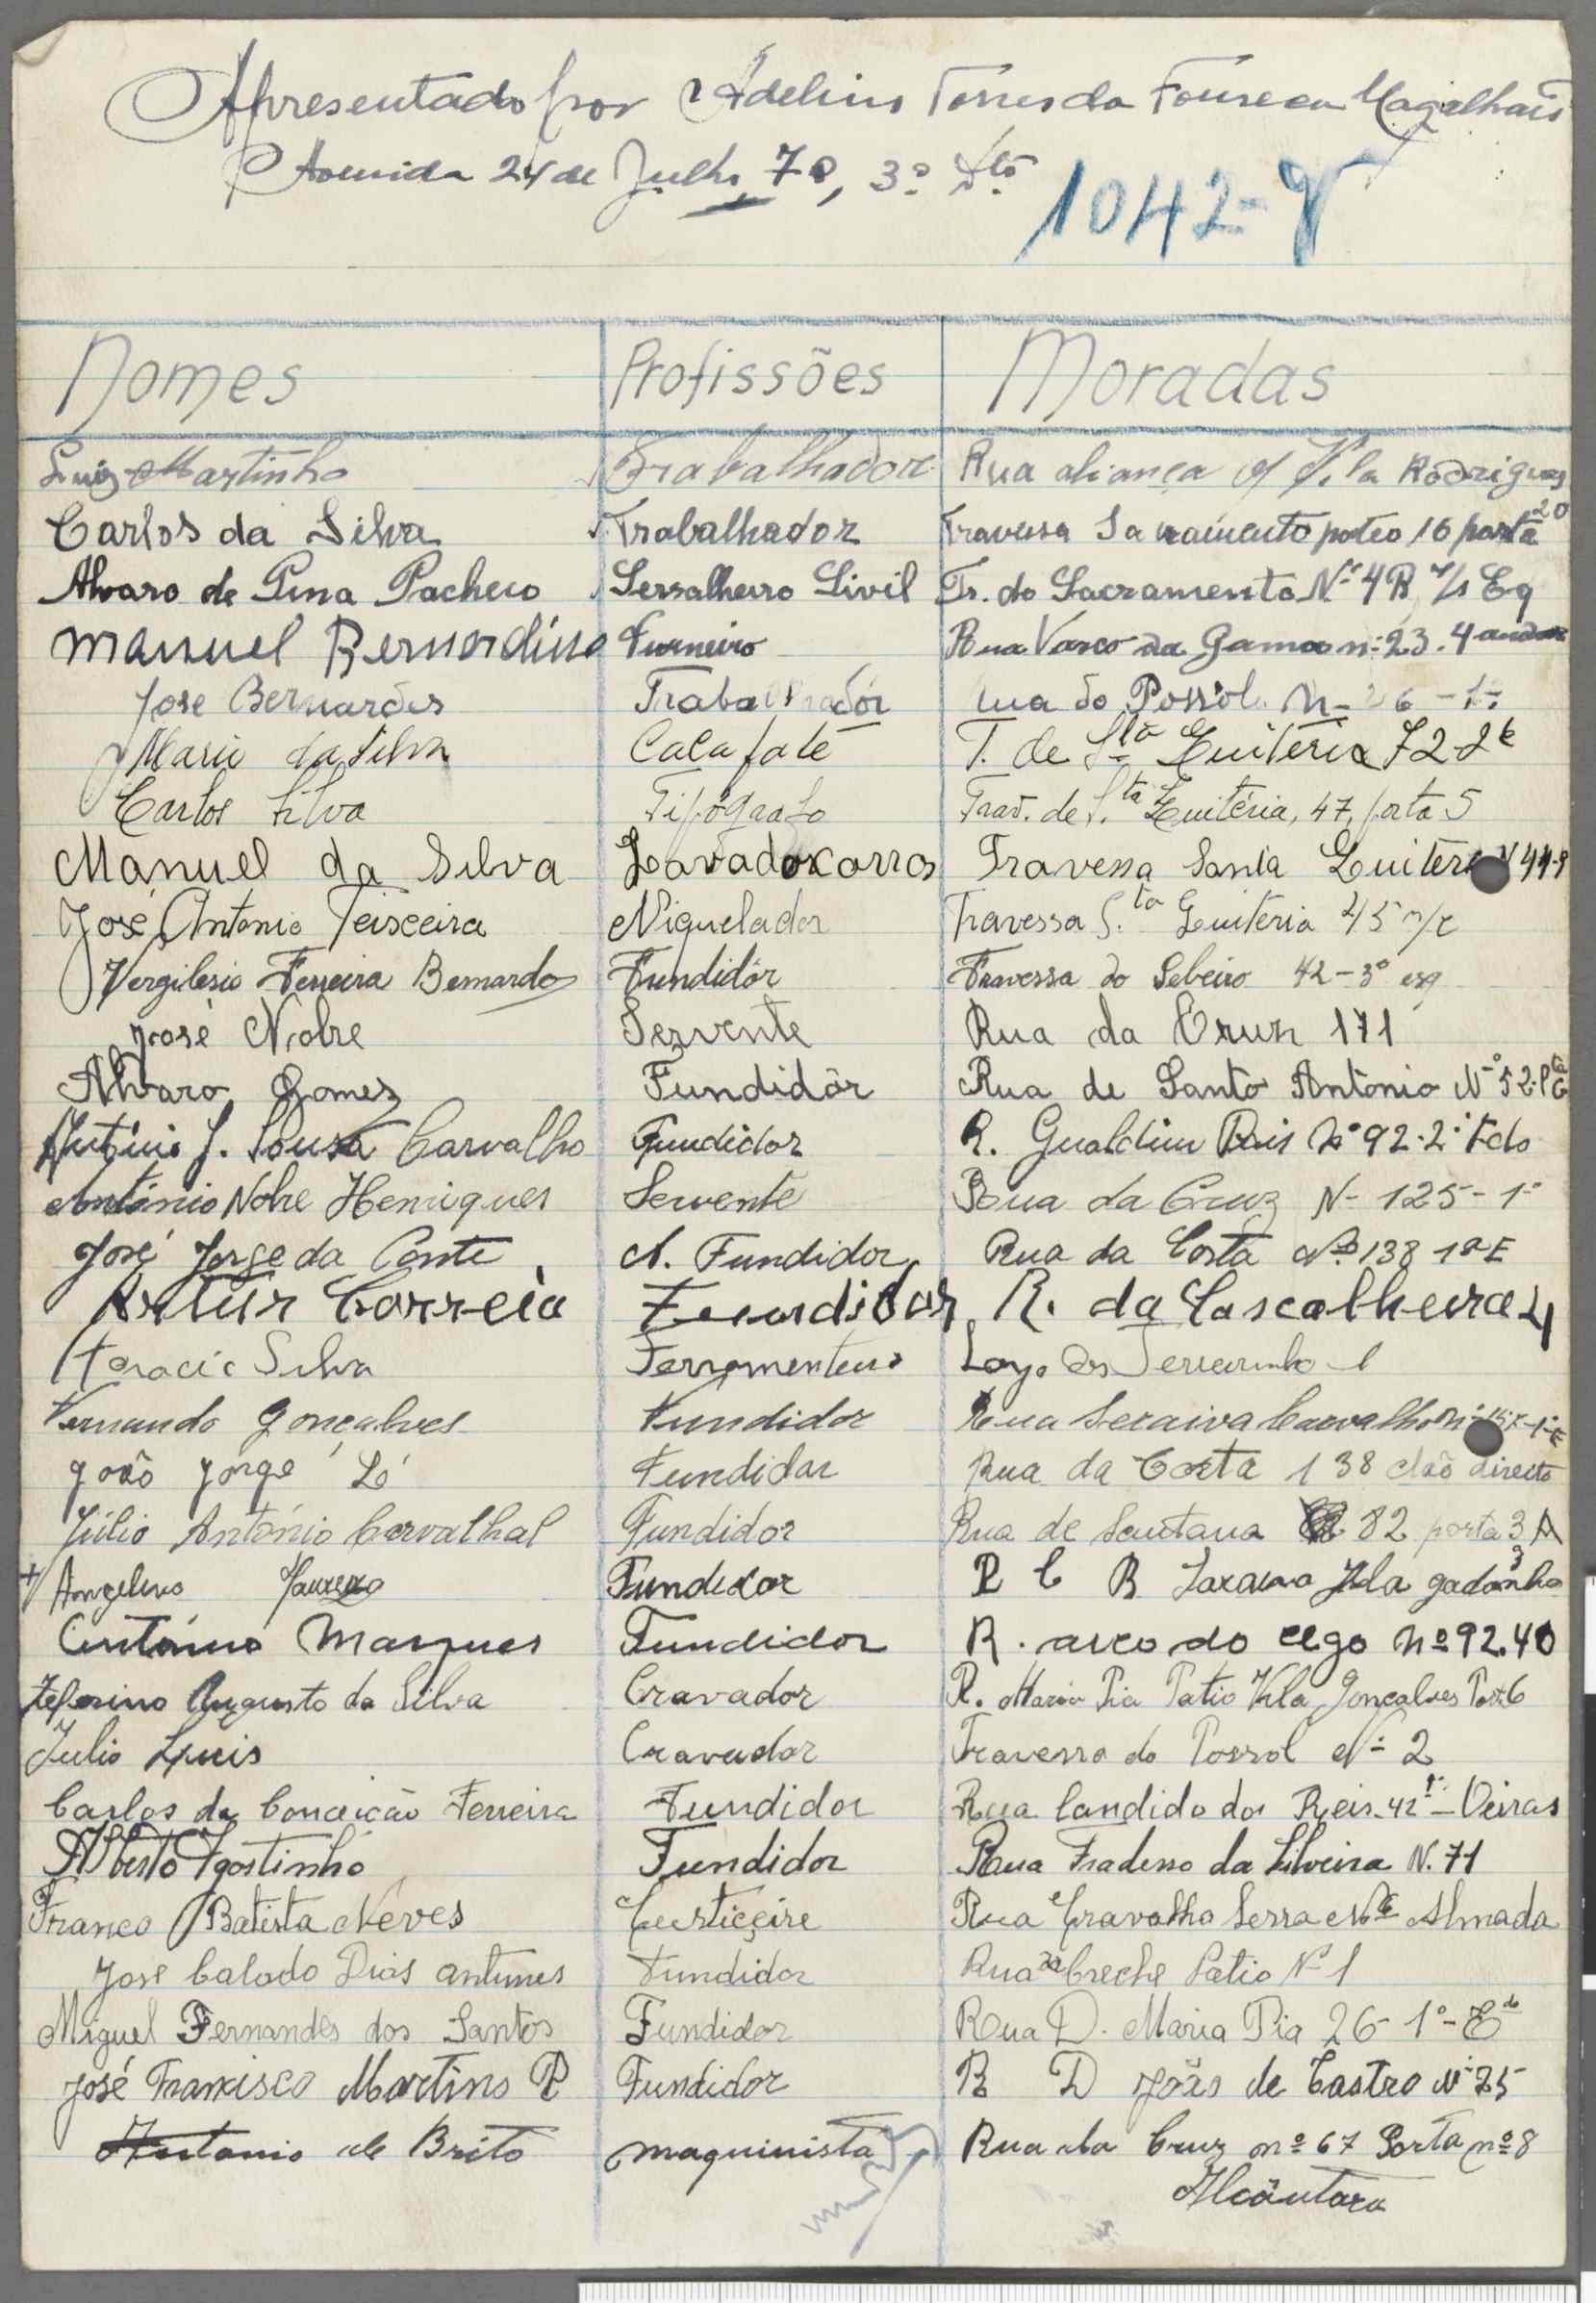 Apresentado por Adelino Torres da Fonseca Magalhais
Avenida 24 de Julho, 70, 3º Dto
1042-
Nomes Profissões Moradas
Luiz Martinho Trabalhador Rua aliança Vila Rodrigues
Carlos da Silva Trabalhador Travessa Sacramento pateo 16 porta 20
Alvaro de Pina Pacheco Serralheiro Sivil Tr. do Sacramento Nº 4B Eq
Manuel Bernardino Turneiro Rua Vasco da Gama nº 23. 4 andar
Jose Bernardes Trabalhador Rua do Possolo 6-1º
Mario da Silva Calafate T. de Sta Quitéria 72
Carlos Silva Tipógrafo Trav. de S.ta Quitéria, 47, porta 5
Manuel da Silva Lavador carros Travessa Santa Quiteria
José Antonio Teisceira Niquelador Travessa S.ta Quiteria 45 r/c
Vergilesio Ferreira Bernardo Fundidôr Travessa do Sebeiro 42-3º esq
José Nobre Servente Rua da Cruz 171
Alvaro Gomez Fundidôr Rua de Santo Antonio Nº 52.
António J. Sousa Carvalho Fundidor R. Gualdim Pais Nº 92-2º
António Nobre Henriques Servente Rua da Cruz Nº 125-1º
José Jorge da Conte A. Fundidor Rua da Costa Nº 138 1º E
Artur Correia Fundidor R. da Cascalheira 4
Horacio Silva Ferramenteiro Largo do Terreirinho 1
Fernando Gonçalves Fundidor Rua Seraiva Carvalho
João Jorge Ló Fundidor Rua da Costa 138 chão direito
Júlio António Carvalhal Fundidor Rua de Santana 82 porta 3 A
+ Angelino Fundidor
António Marques Fundidor R. arco do cego nº 92.40
Zeferino Augusto da Silva Cravador R. Maria Pia Patio Vila Gonçalves Port. 6
Julio Luis Cravador Travessa do Possol Nº 2
Carlos da Conceição Ferreira Fundidor Rua Candido dos Reis-42 1º-Oeiras
Alberto Agostinho Fundidor Rua Fradesso da Silveira N. 71
Franco Batista Neves Rua Carvalho Serra Almada
José Calado Dias antunes Fundidor Rua da Creche Patio Nº 1
Miguel Fernandes dos Santos Fundidor Rua D. Maria Pia 26-1º-Edo
José Francisco Martins P Fundidor R D João de Castro Nº 25
Antonio de Brito maquinista Rua da Cruz nº 67 Porta nº 8
Alcântara